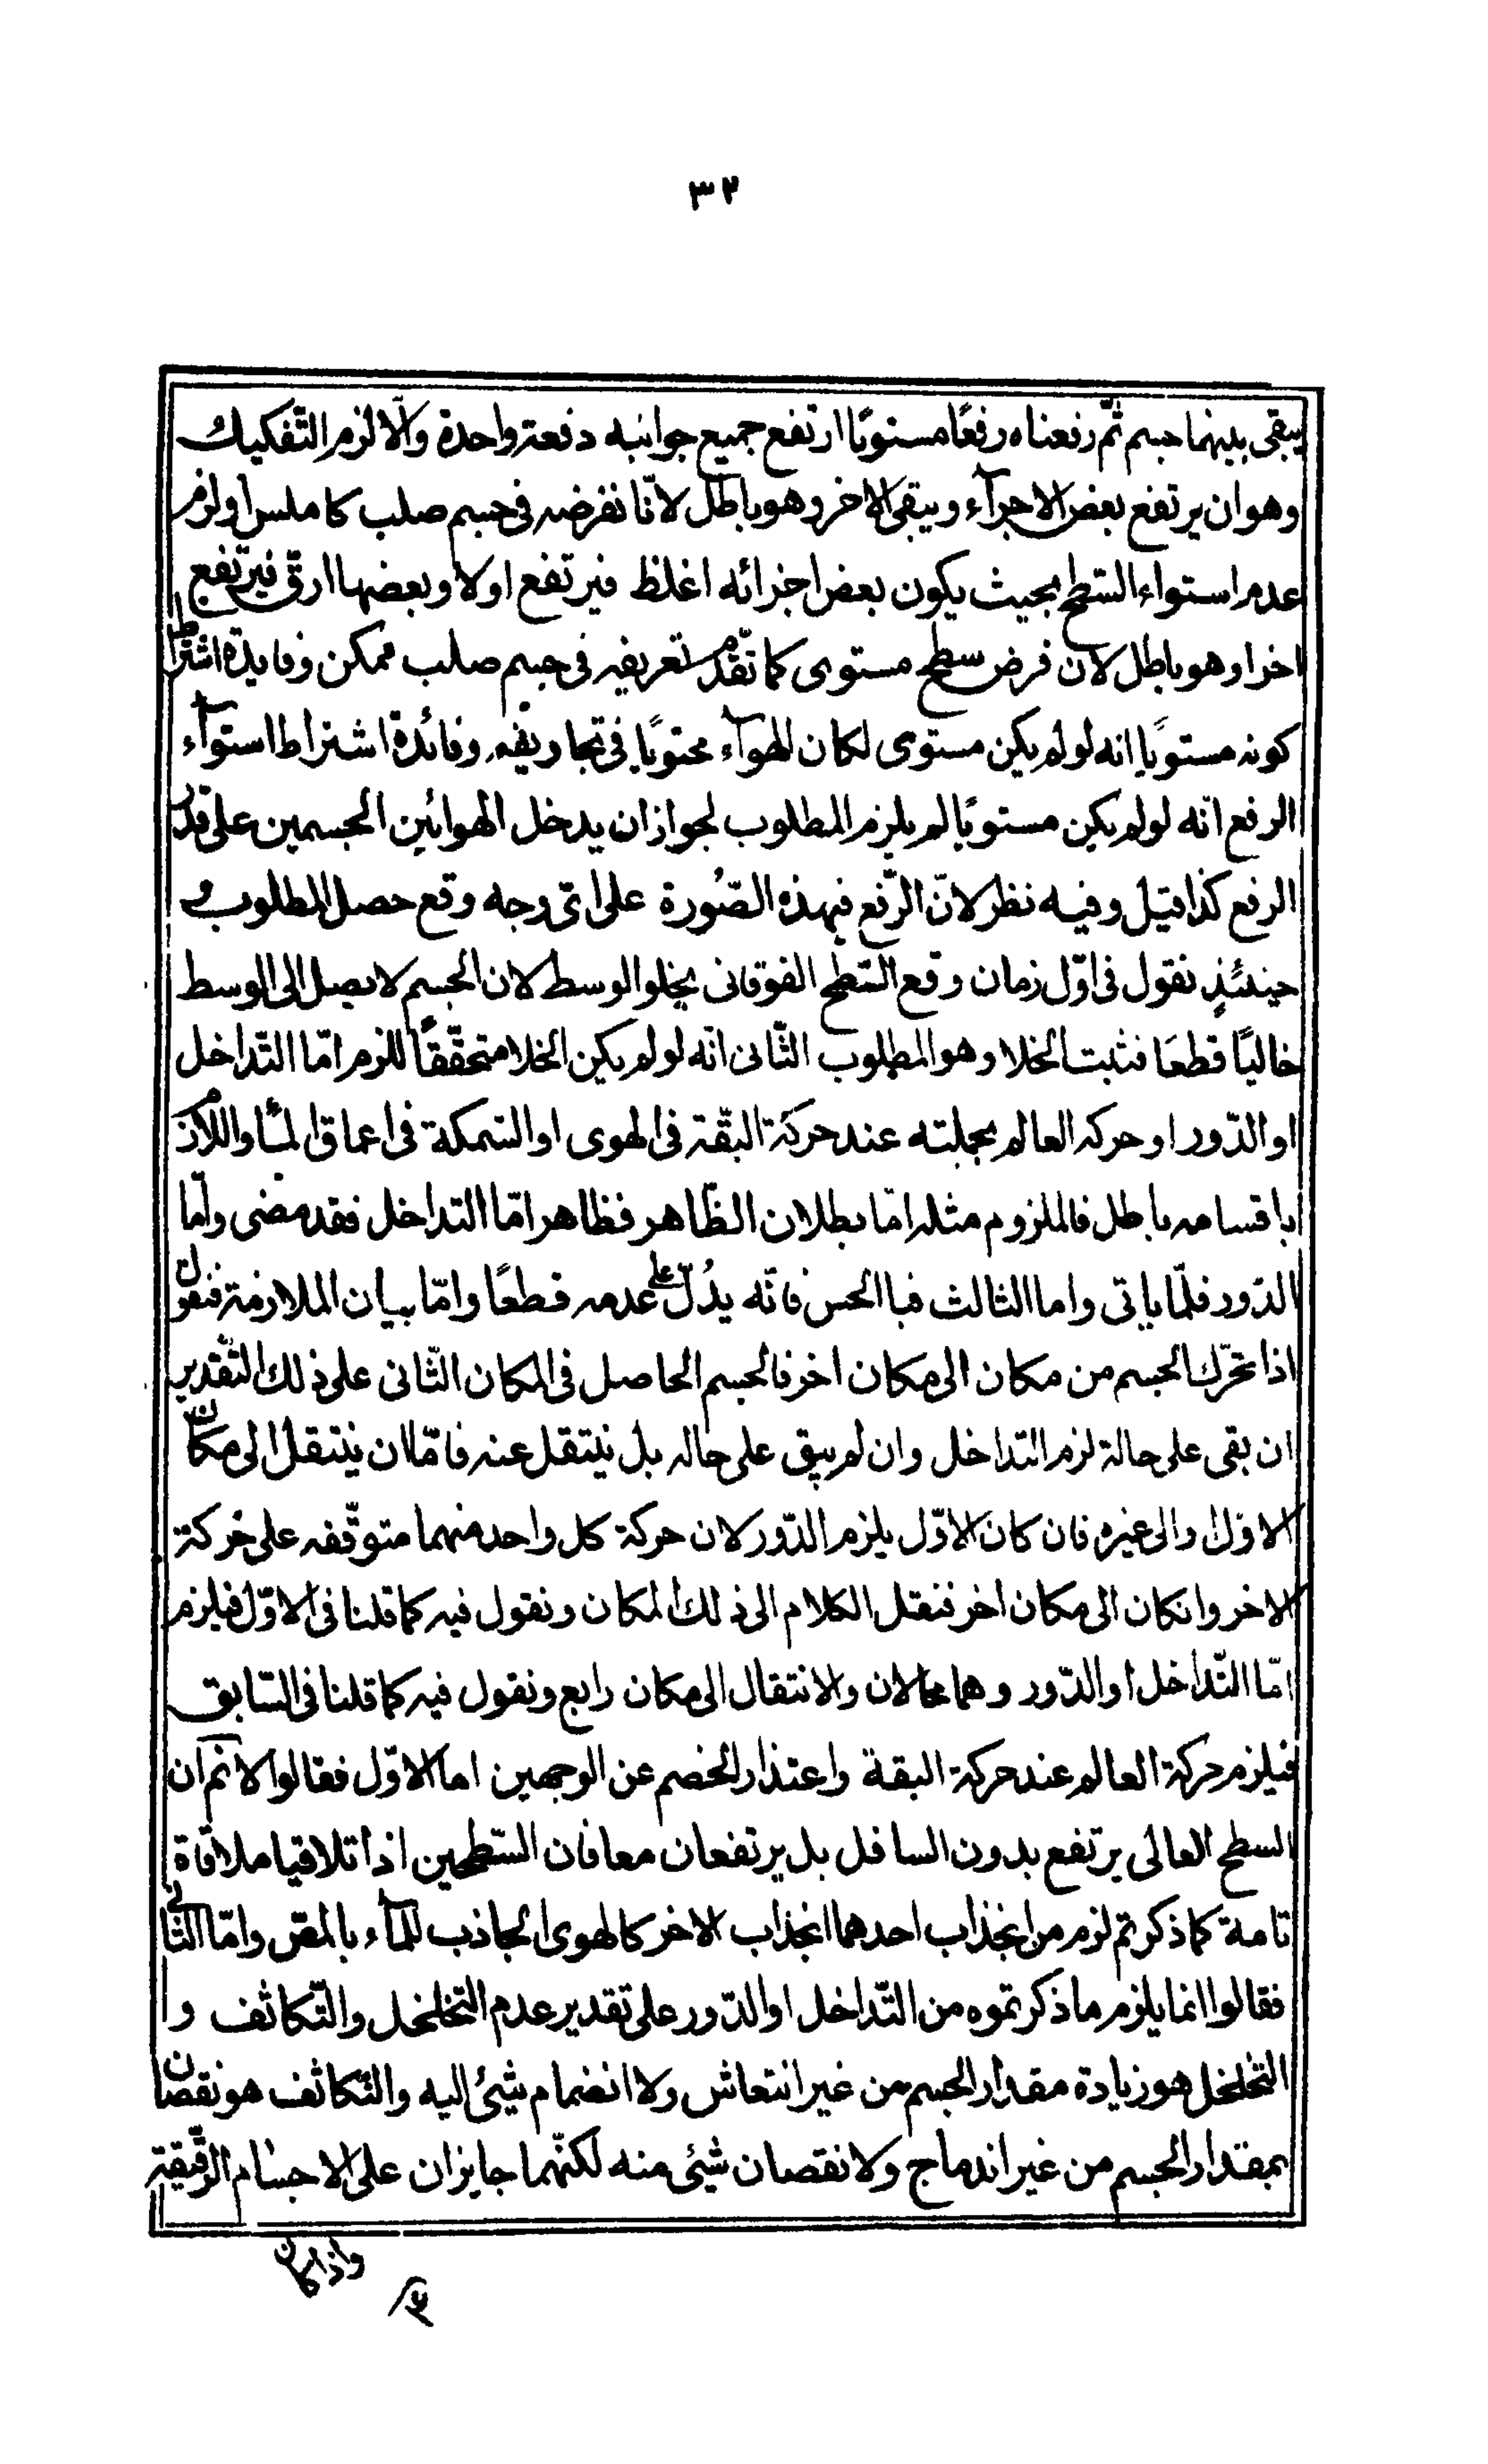 ٣٢
يبقى بينهما جسم ثمّ رفعناه رفعًا مستويًا ارتفع جميع جوانبه دفعة واحدة والّا لزم التّفكيك
وهو ان يرتفع بعض الاجزآء ويبقى الاخر وهو باطل لانّا نفرضه فى جسم صلب كاملس او لزم
عدم استواء السّطح بحيث يكون بعض اجزائه اغلظ فيرتفع اولا وبعضها ارقّ فيرتفع
اخرا وهو باطل لان فرض سطح مستوى كما تقدّم تعريفه فى جسم صلب ممكن وفايدة اشتراط
كونه مستويًا انه لو لم يكن مستوى لكان الهوآء محتويًا فى تجاويفه وفائدة اشتراط استوآء
الرفع انّه لو لم يكن مستويًا لم يلزم المطلوب لجواز ان يدخل الهوا بين الجسمين على قدر
الرفع كذا قيل وفيه نظر لانّ الرّفع فبهذه الصّورة على اىّ وجه وقع حصل المطلوب و
حينئذٍ نقول فى اوّل زمان رفع السّطح الفوقانى يخلو الوسط لان الجسم لا يصل الى الوسط
خاليًا قطعًا فثبت الخلا وهو المطلوب الثّانى انّه لو لم يكن الخلا متحقّقًا للزم امّا التّداخل
او الدّور او حركه العالم بجملته عند حركة البقّة فى الهوى او السّمكة فى اعماق المآء واللازم
باقسامه باطل فالملزوم مثله امّا بطلان الظّاهر فظاهر امّا التداخل فقد مضى وامّا
الدّور فلمّا ياتى واما الثالث فبا الحس فانّه يدُلّ على عدمه قطعًا وامّا بيان الملازمة فنقول
اذا تحرّك الجسم من مكان الى مكان اخر فالجسم الحاصل فى المكان الثّانى على ذلك التّقدير
ان بقى على حالة لزم التداخل وان لم يبق على حاله بل ينتقل عنه فامّا ان ينتقل الى مكان
الاوّل والى غيره فان كان الاوّل يلزم الدّور لان حركة كل واحد منهما متوقّفه على حركة
الاخر وانكان الى مكان اخر فنقل الكلام الى ذلك المكان ونقول فيه كما قلنا فى الاوّل فيلزم
امّا التّداخل او الدّور وهما محالان والانتقال الى مكان رابع ونقول فيه كما قلنا فى السّابق
فيلزم حركة العالم عند حركة البقة واعتذار الخصم عن الوجهين اما الاوّل فقالوا لا نم ان
السطح العالى يرتفع بدون السافل بل يرتفعان معا فان السّطحين اذا تلاقيا ملاقاة
تامة كما ذكرتم لزم من انجذاب احدهما انجذاب الاخر كالهوى الجاذب للمآء بالمقص وامّا الثّانى
فقالوا انما يلزم ما ذكرتموه من التّداخل او الدّور على تقدير عدم التخلخل والتّكاثف وا
التخلخل هو زيادة مقدار الجسم من غير انتعاش ولا انضمام شيئ اليه والتّكاثف هو نقصان
بمقدار الجسم من غير اندماج ولا نقصان شيئ منه لكنّهما جايزان على الاجسام الرّقيقة
واذا كان